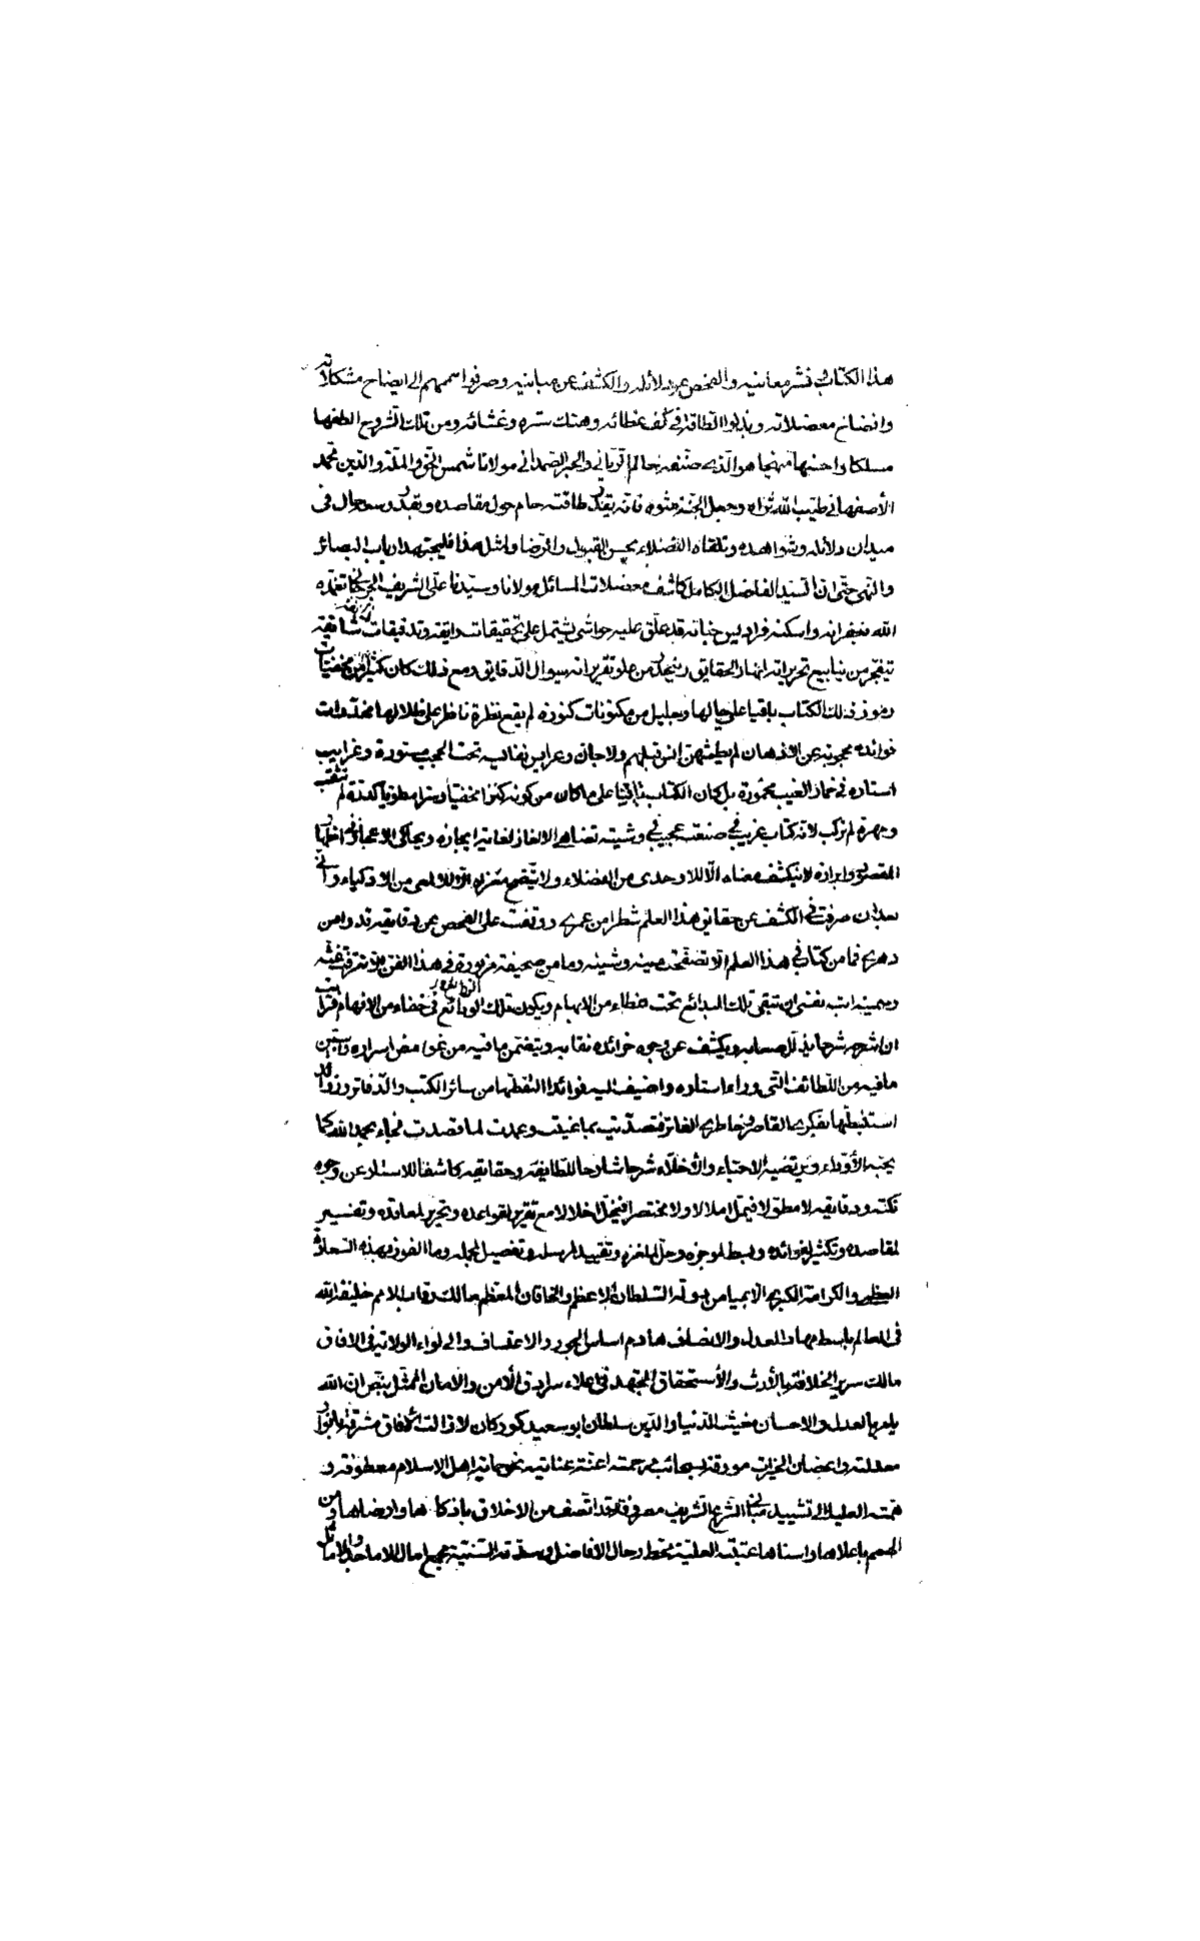 هذا الكتاب في نشر معانيه والفحص عن دلائله والكشف عن مبانيه وصرفوا هممهم الى ايضاح مشكلاته
وافضاح معضلاته وبذلوا الطاقة في كشف غطائه وهتك ستره وغشائه ومن تلك الشروح الطفها
مسلكا واحسنها منهجا هو الذي صنفه العالم الرباني والحبر الصمداني مولانا شمس الحق والملة والدين محمد
الأصفهاني طيب الله ثراه وجعل الجنة مثواه فانه بقدر طاقته حام حول مقاصده وبقدر وسعه جال في
ميدان دلائله وشواهده وتلقاه الفضلاء بحسن القبول والرضا ولمثل هذا فليجتهد ارباب البصائر
والنهى حتى ان السيد الفاضل الكامل كاشف معضلات المسائل مولانا وسيدنا علي الشريف الجرجاني تغمده
الله بغفرانه واسكنه فراديس جنانه قد علق عليه حواشي يشتمل على تحقيقات رايقة وتدقيقات شائقة
تتفجر من ينابيع تحريراته انهار الحقايق وينحدر من علو تقريراته سيول الدقايق ومع ذلك كان كثير من مخفيات
رموز ذلك الكتاب باقيا على حالها وجليل من مكنونات كنوزه لم يقع نظرة ناظر على ظلالها مخدرات
خوائده محجوبة عن الاذهان لم يطمثهن انس قبلهم ولا جان وعرايس نفايسه تحت الحجب مستورة وغرايب
استاره في خمار الغيب مخمورة بل كان الكتاب باقيا على ما كان من كونه كنزا مخفيا وسرا مطويا كدرة لم تثقب
ومهرة لم تركب لانه كتاب غريب في صنعته عجيب في وشيته تضاهي الالغاز لغاية ايجازه ويحاكي الاعجاز في اظهار
المقصود وابرازه لا ينكشف معناه الا للاوحدي من الفضلاء ولا يتضح مغزاه الا للالمعي من الاذكياء واني
بعد ان صرفت في الكشف عن حقايق هذا العلم شطرا من عمري ووقفت على الفحص عن دقايقه قدرا من
دهري فما من كتاب في هذا العلم الا تصفحت صينه وشينه وما من صحيفة مزبورة في هذا الفن الا تتبعت غثه
وسمينه ابت نفسي ان تبقى تلك البدائع تحت غطاء من الابهام ويكون تلك الودائع في خفاء من الافهام فرايت
ان اشرحه شرحا يذلل صعابه ويكشف عن وجوه خرائده نقابه ويتضمن ما فيه من غوامض اسراره
ما فيه من اللطائف التي وراء استاره واضيف اليه فوائد التقطتها من سائر الكتب والدفاتر وزوائد
استنبطتها بفكري القاصر وخاطري الفاتر فتصديت بما عنيت وعمدت لما قصدت فجاء بحمد الله كما
يحبه الأوداء ويرتضيه الاحباء والأخلاء شرحا شارحا للطايفه وحقايقه كاشفا للاستار عن وجوه
نكته ودقايقه لا مطولا فيمل املالا ولا مختصرا فيخل اخلالا مع تقرير لقواعده وتحرير لمعاقده وتفسير
لمقاصده وتكثير لفوائده وبسط لموجزه وحل لملغزه وتقييد لمرسله وتفصيل لمجمله وما الفوز بهذه السعادة
العظمى والكرامة الكبرى الا بميامن دولة السلطان الاعظم والخاقان المعظم مالك رقاب الامم خليفة الله
في العالم باسط مهاد العدل والانصاف هادم اساس الجور والاعتساف والي لواء الولاية في الافاق
مالك سرير الخلافة بالأرث والأستحقاق المجتهد في اعلاء سرادق الأمن والامان الممتثل بنص ان الله
يامر بالعدل والاحسان مغيث الدنيا والدين سلطان ابو سعيد كوركان لا زالت الافاق مشرقة بانوار
معدلته واغصان الخيرات مورقة بسحائب مرحمته اعنة عنايته نحو حماية اهل الاسلام معطوفة و
همته العلية الى تشييد مباني الشرع الشريف مصروفة قد اتصف من الاخلاق باذكاها وارضاها ومن
الهمم باعلاها واسناها عتبته العلية محط رحال الافاضل وسدته السنية مجمع امال الاماجد والاماثل